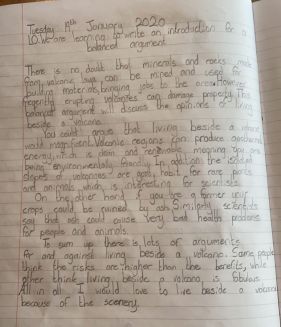 Tuesday 14th January 2020
LO: We are learning to write an introduction for a
balanced argument
There is no doubt that minerals and rocks made
from volcanic lava can be mined and used for
building materials, bringing jobs to the area. However
regently erupting volcanoes can damage property. This
balanced argument will discuss the opinions of living
beside a volcano.
You could argue that living beside a volcano
would magnificent. Volcanic regions can produce geothermal
energy, which is clean and renewable meaning you are
being environmentally friendly. In addition the isolated
slopes of volcanoes are good habit for rare plants
and animals which is interesting for scientists.
On the other hand if you are a farmer your
crops could be ruined by ash. Similarly scientists
say that ash could cause very bad health problems
for people and animals.
To sum up there is lots of arguments
for and against living beside a volcano. Some people
think the risks are thigher than the benefits, while
other think living beside a volcano is fabulous.
All in all I would love to live beside a volcano
because of the scenery.